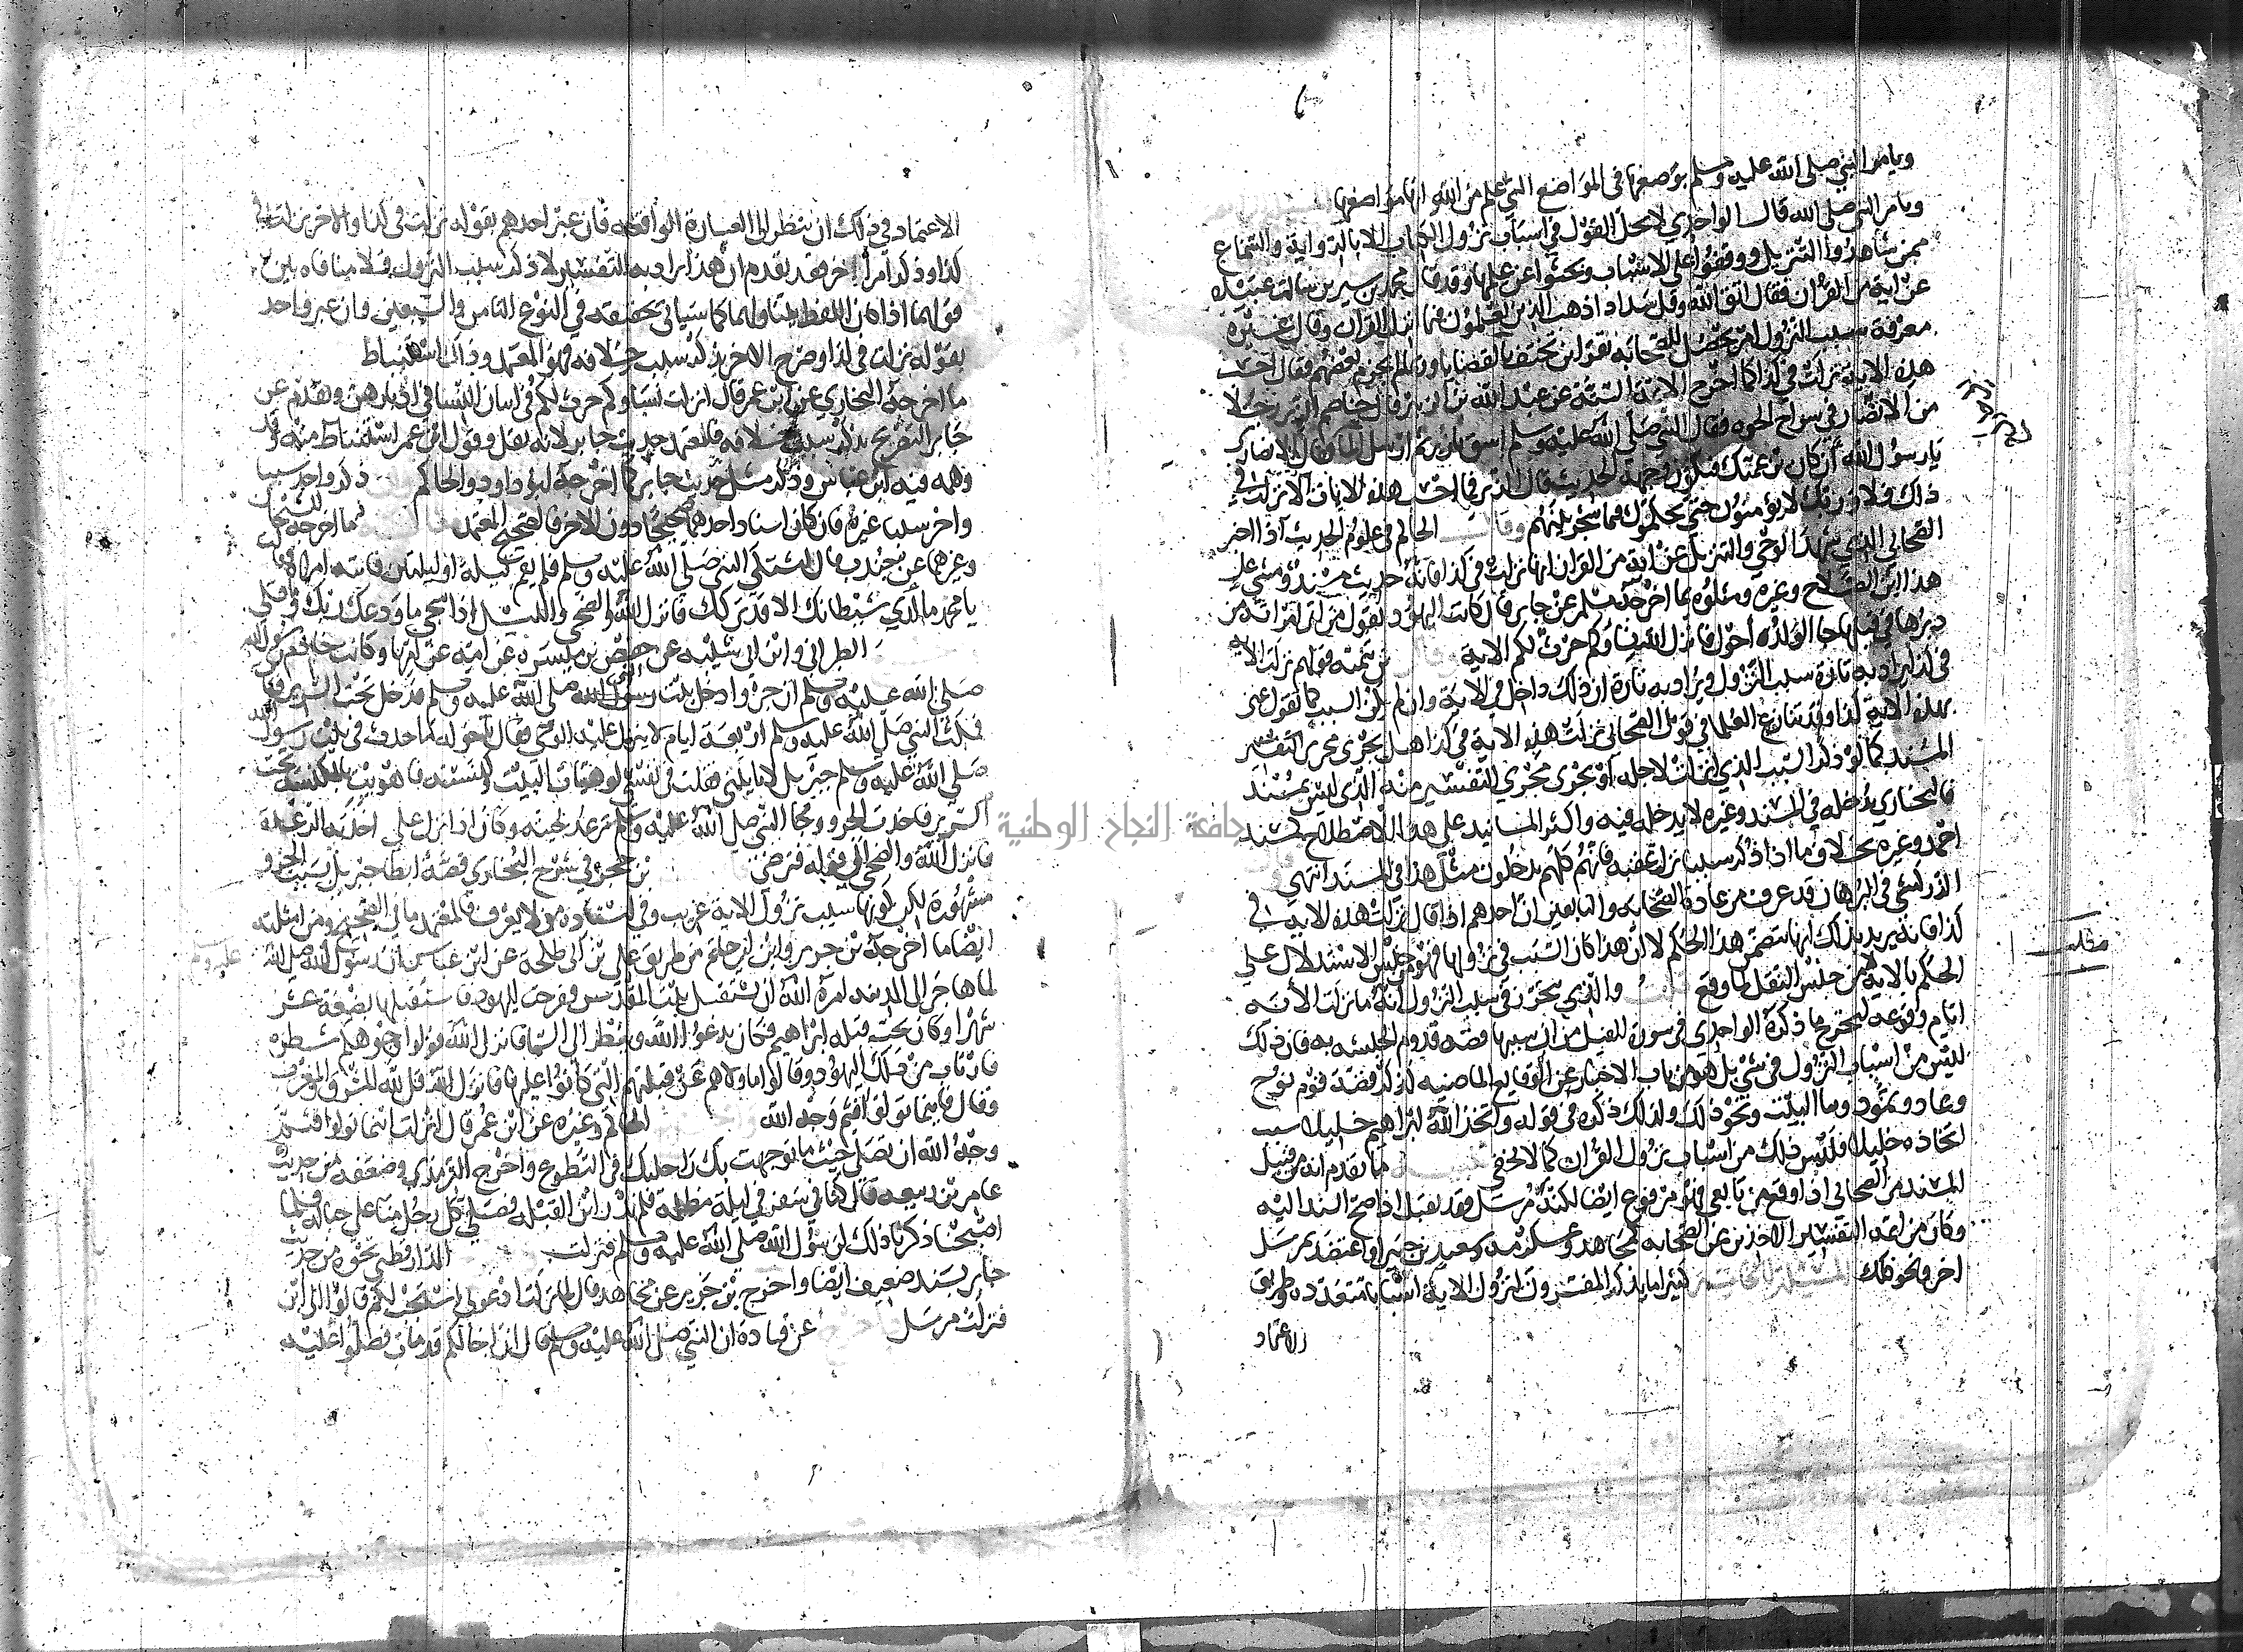 ويامر النبي صلى الله عليه وسلم بوضعها في المواضع التي علم من الله انها مواضعها
ويامر النبي صلى الله قال الواحدي لا يحل القول في اسباب نزول الكتاب الا بالرواية والسماع
ممن شاهدوا التنزيل ووقفوا على الاسباب وبحثوا عن علمها وقد قال محمد بن سيرين سالت عبيدة
عن اية من القران فقال اتق الله وقل سدادا ذهب الذين يعلمون فيما انزل القران وقال غيره
معرفة سبب النزول امر يحصل للصحابه بقراين تحتف بالقضايا وربما لم يجزم بعضهم فقال احسب
هذه الاية نزلت في كذا كما اخرج الائمة الستة عن عبد الله بن الزبير قال خاصم الزبير رجلا
من الانصار في شراج الحره فقال النبي صلى الله عليه وسلم اسق يا زبير ثم ارسل الما فقال الانصاري
يا رسول الله ان كان ابن عمتك فتلون وجهه الحديث قال الزبير فما احسب هذه الايات الا نزلت في
ذلك فلا وربك لا يؤمنون حتى يحكموك فيما شجر بينهم وقال الحاكم في علوم الحديث اذا اخبر
الصحابي الذي شهد الوحي والتنزيل عن اية من القران انها نزلت في كذا فانه حديث مسند ومشى على
هذا ابن الصلاح وغيره ومثلوه بما اخرجه مسلم عن جابر قال كانت اليهود تقول من اتى امراته من
دبرها في قبلها جا الولد احول فانزل الله نساؤكم حرث لكم الاية بن تيمية قولهم نزلت الاية
في كذا يراد به تارة سبب النزول ويراد به تارة ان ذلك داخل في الاية وان لم يكن السبب كما تقول عنى
بهذه الاية كذا وقد تنازع العلما في قول الصحابي نزلت هذه الاية في كذا هل يجرى مجرى
المسند كما لو ذكر السبب الذي انزلت لاجله او يجرى مجرى التفسير منه الذي ليس بمسند
فالبخاري يدخله في المسند وغيره لا يدخله فيه واكثر المسانيد على هذا الاصطلاح كمسند
احمد وغيره بخلاف ما اذا ذكر سببا نزلت عقبه فانهم كلهم يدخلون مثل هذا في المسند انتهي
الزركشي في البرهان قد عرف من عادة الصحابه والتابعين ان احدهم اذا قال نزلت هذه الاية في
كذا فانه يريد بذلك انها تتضمن هذا الحكم لا ان هذا كان السبب في نزولها فهو من جنس الاستدلال على
الحكم بالاية لا من جنس النقل لما وقع والذي يتحرر في سبب النزول انه ما نزلت الاية
ايام وقوعه ليخرج ما ذكره الواحدي في سورة الفيل من ان سببها قصة قدوم الحبشه به فان ذلك
ليس من اسباب النزول في شي بل هو من باب الاخبار عن الوقايع الماضيه كذكر قصة قوم نوح
وعاد وثمود وبنا البيت ونحو ذلك وكذلك ذكره في قوله واتخذ الله ابراهيم خليلا سبب
اتخاذه خليلا فليس ذلك من اسباب نزول القران كما لا يخفى تنبيه ما تقدم انه من قبيل
المسند من الصحابي اذا وقع من تابعي فهو مرفوع ايضا لكنه مرسل فقد يقبل اذا صح السند اليه
وكان من ايمة التفسير الاخذين عن الصحابه كمجاهد وعكرمه وسعيد بن جبير او اعتضد بمرسل
اخر ونحو ذلك المسئلة الخامسة كثيرا ما يذكر المفسرون لنزول الاية اسبابا متعددة وطريق
الاعتماد
الاعتماد في ذلك ان ينظر الى العبارة الواقعه فان عبر احدهم بقوله نزلت في كذا والاخر نزلت في
كذا وذكر امرا اخر فقد تقدم ان هذا يراد به التفسير لا ذكر سبب النزول فلا منافاه بين
قولهما اذا كان اللفظ يتناولهما كما سياتي تحقيقه في النوع الثامن والسبعين وان عبر واحد
بقوله نزلت في كذا وصرح الاخر بذكر سبب خلافه فهو المعتمد وذاك استنباط
ما اخرجه البخاري عن ابن عمر قال انزلت نساوكم حرث لكم في اتيان النسا في ادبارهن وتقدم عن
جابر التصريح بذكر سبب خلافه فالمعتمد حديث جابر لانه نقل وقول ابن عمر استنباط منه وقد
وهمه فيه ابن عباس وذكر مثل حديث جابر كما اخرجه ابو داود والحاكم ذكر واحد سببا
واخر سببا غيره فان كان اسناد احدهما صحيحا دون الاخر فالصحيح المعتمد ما اخرجه
وغيرهما عن جندب قال اشتكى النبي صلى الله عليه وسلم فلم يقم ليلة او ليلتين فاتته امراة
يا محمد ما ارى شيطانك الا قد تركك فانزل الله والضحى والليل اذا سجى ما ودعك ربك وما قلى
الطبراني وابن ابي شيبه عن حفص بن ميسره عن امه عن امها وكانت خادم رسول الله
صلى الله عليه وسلم ان جروا دخل بيت رسول الله صلى الله عليه وسلم فدخل تحت السرير فمات
فمكث النبي صلى الله عليه وسلم اربعة ايام لا ينزل عليه الوحي فقال يا خوله ما حدث في بيت رسول الله
صلى الله عليه وسلم جبريل لا ياتيني فقلت في نفسي لو هيات البيت وكنسته فاهويت بالمكنسة تحت
السرير فاخرجت الجرو وجا النبي صلى الله عليه وسلم ترعد لحيته وكان اذا نزل عليه اخذته الرعدة
فانزل الله والضحى الى قوله فترضى بن حجر في شرح البخاري قصة ابطا جبريل بسبب الجرو
مشهورة لكن كونها سبب نزول الاية غريب وفي اسناده من لا يعرف فالمعتمد ما في الصحيح ومن امثلته
ايضا ما اخرجه بن جرير وابن ابي حاتم من طريق علي بن ابي طلحة عن ابن عباس ان رسول الله صلى الله
لما هاجر الى المدينه امره الله ان يستقبل بيت المقدس ففرحت اليهود فاستقبلها بضعة عشر
شهرا وكان يحب قبله ابراهيم فكان يدعو الله وينظر الى السما فانزل الله فولوا وجوهكم شطره
فارتاب من ذلك اليهود وقالوا ما ولاهم عن قبلتهم التي كانوا عليها فانزل الله قل لله المشرق والمغرب
وقال فاينما تولوا فثم وجه الله الحاكم وغيره عن ابن عمر قال انزلت اينما تولوا فثم
وجه الله ان تصلى حيث ما توجهت بك راحلتك في التطوع واخرج الترمذي وضعفه من حديث
عامر بن ربيعه قال كنا في سفر في ليلة مظلمة فلم ندر اين القبله فصلى كل رجل منا على حياله فلما
اصبحنا ذكرنا ذلك لرسول الله صلى الله عليه وسلم فنزلت الدارقطني نحوه من حديث
جابر بسند ضعيف ايضا واخرج بن جرير عن مجاهد قال لما نزلت ادعوني استجب لكم قالوا الى اين
فنزلت مرسل عن قتادة ان النبي صلى الله عليه وسلم قال ان اخا لكم قد مات فصلوا عليه
جامعة النجاح الوطنية